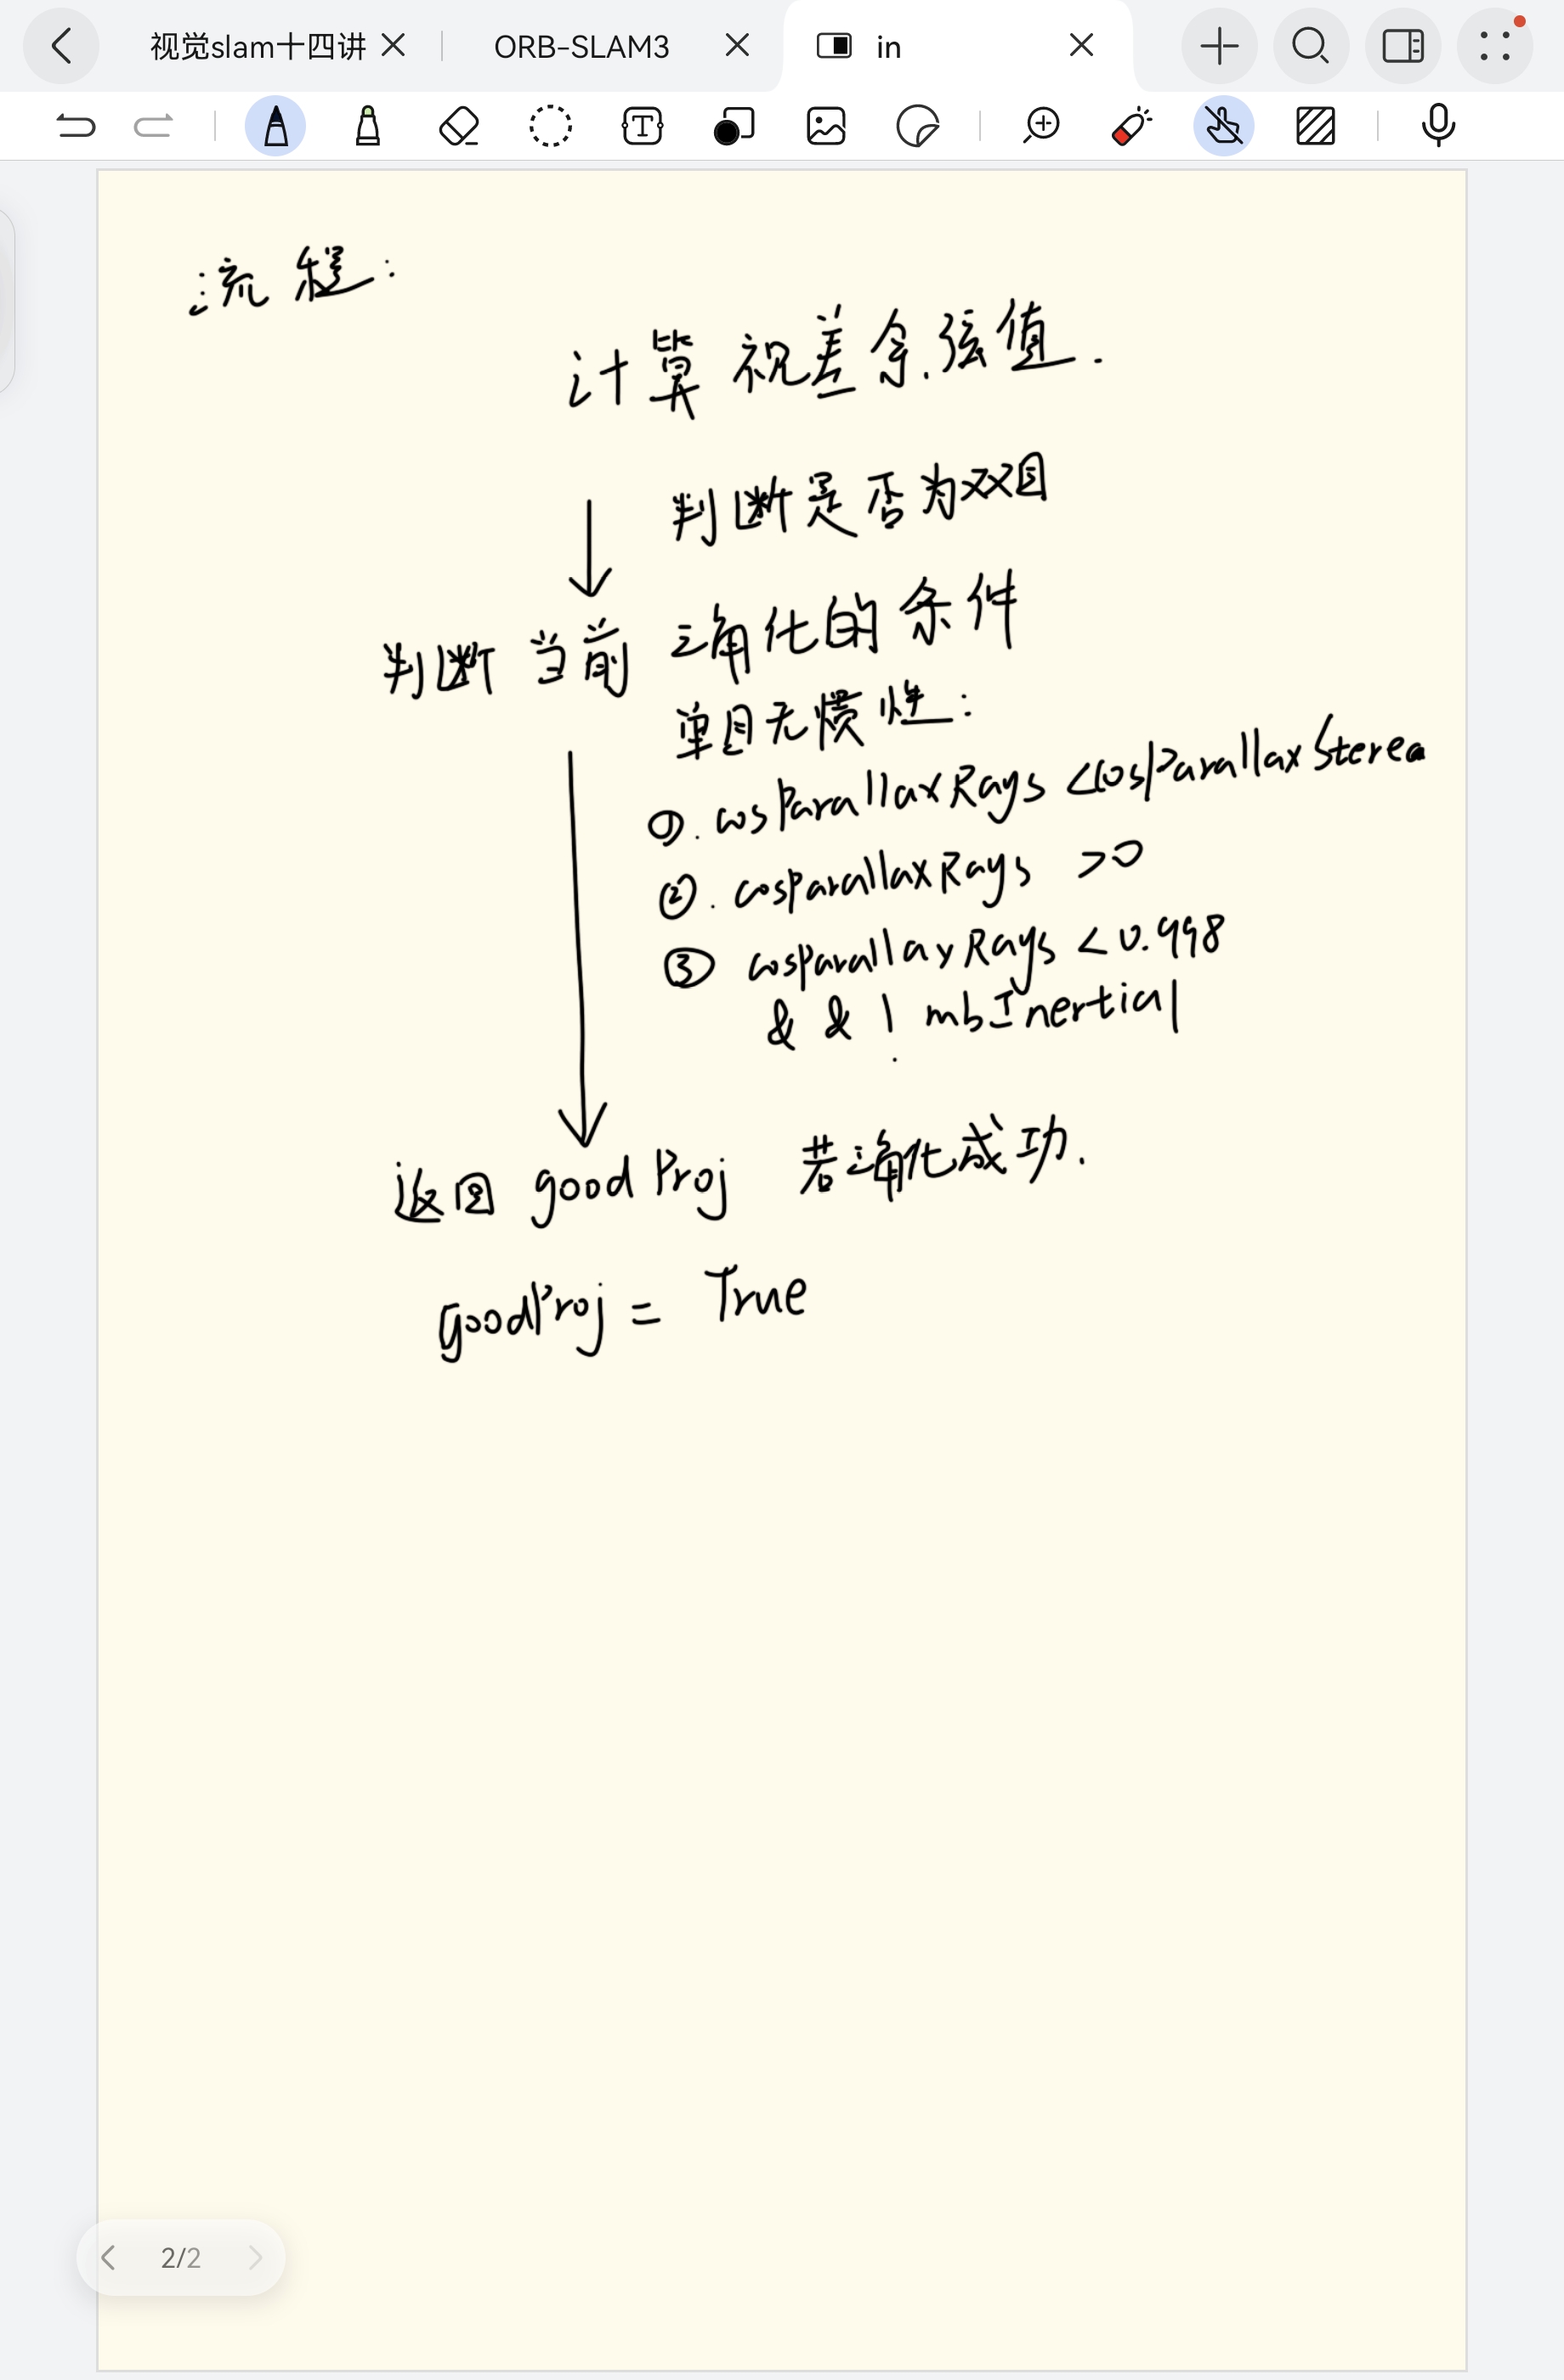 视觉slam十四讲
ORB-SLAM3
in
流程:
计算视差余弦值.
判断是否为双目
判断当前三角化的条件
单目无惯性:
①. cosParallaxRays <cosParallaxStereo
②. cosparallaxRays >0
③ cosparallaxRays < 0.998
&& ! mbInertial
返回 goodProj 若三角化成功.
goodProj = True
2/2